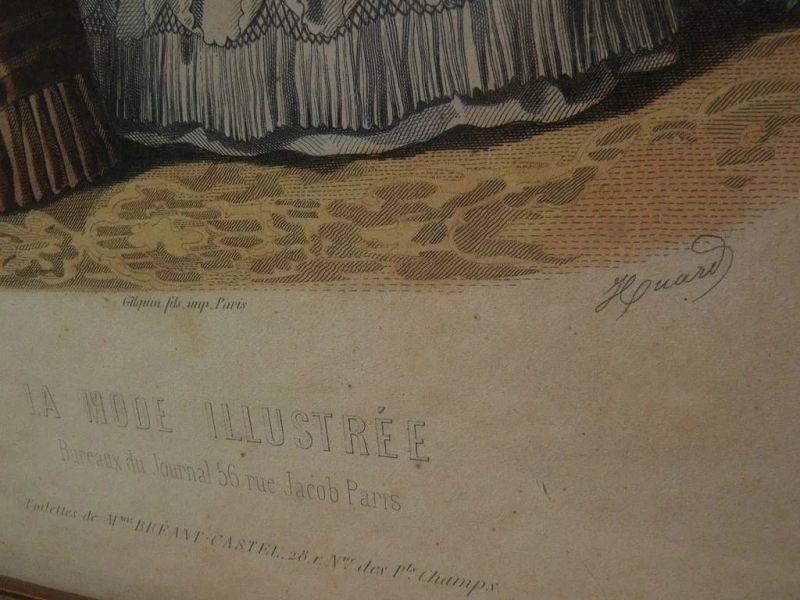 Huard
Gilquin fils, imp. Paris
LA MODE ILLUSTRÉE
Bureaux du Journal 56 rue Jacob Paris
Toilettes de Mme BRÉANT-CASTEL, 28, r. Nve des Pts Champs